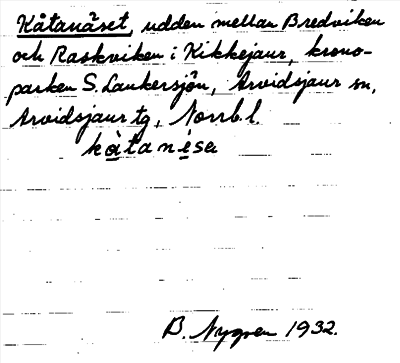 Kåtanäset, udden mellan Bredviken
och Raskviken i Kikkejaur, krono-
parken S. Laukersjön, Arvidsjaur sn,
Arvidsjaur tg, Norrb. l.
kåtanèsa
B. Nygren 1932.